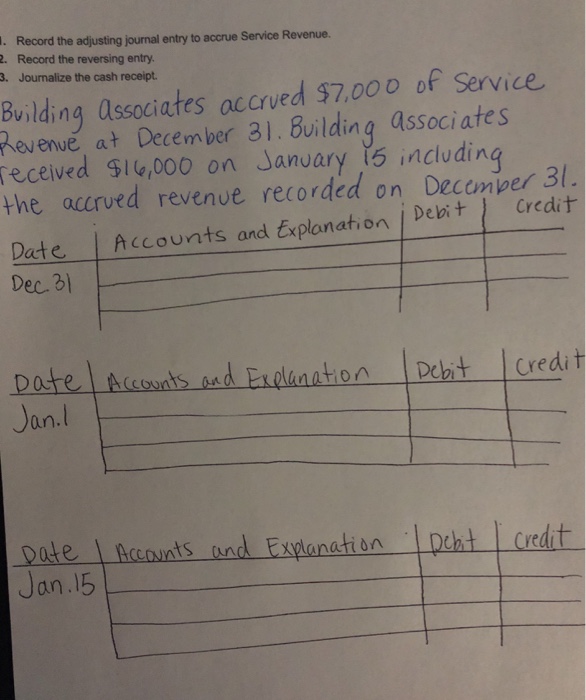 1. Record the adjusting journal entry to accrue Service Revenue.
2. Record the reversing entry.
3. Journalize the cash receipt.
Building Associates accrued $7,000 of Service
Revenue at December 31. Building Associates
received $16,000 on January 15 including
the accrued revenue recorded on December 31.
Date Accounts and Explanation Debit Credit
Dec. 31
Date Accounts and Explanation Debit Credit
Jan. 1
Date Accounts and Explanation Debit Credit
Jan. 15